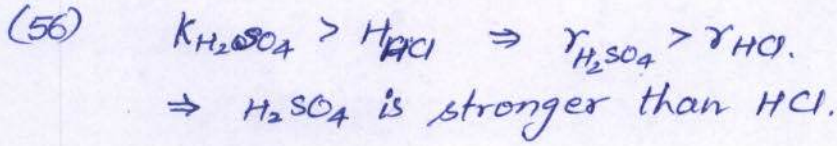 (56) K_H₂SO₄ > H_HCl ⇒ r_H₂SO₄ > r_HCl.
⇒ H₂SO₄ is stronger than HCl.